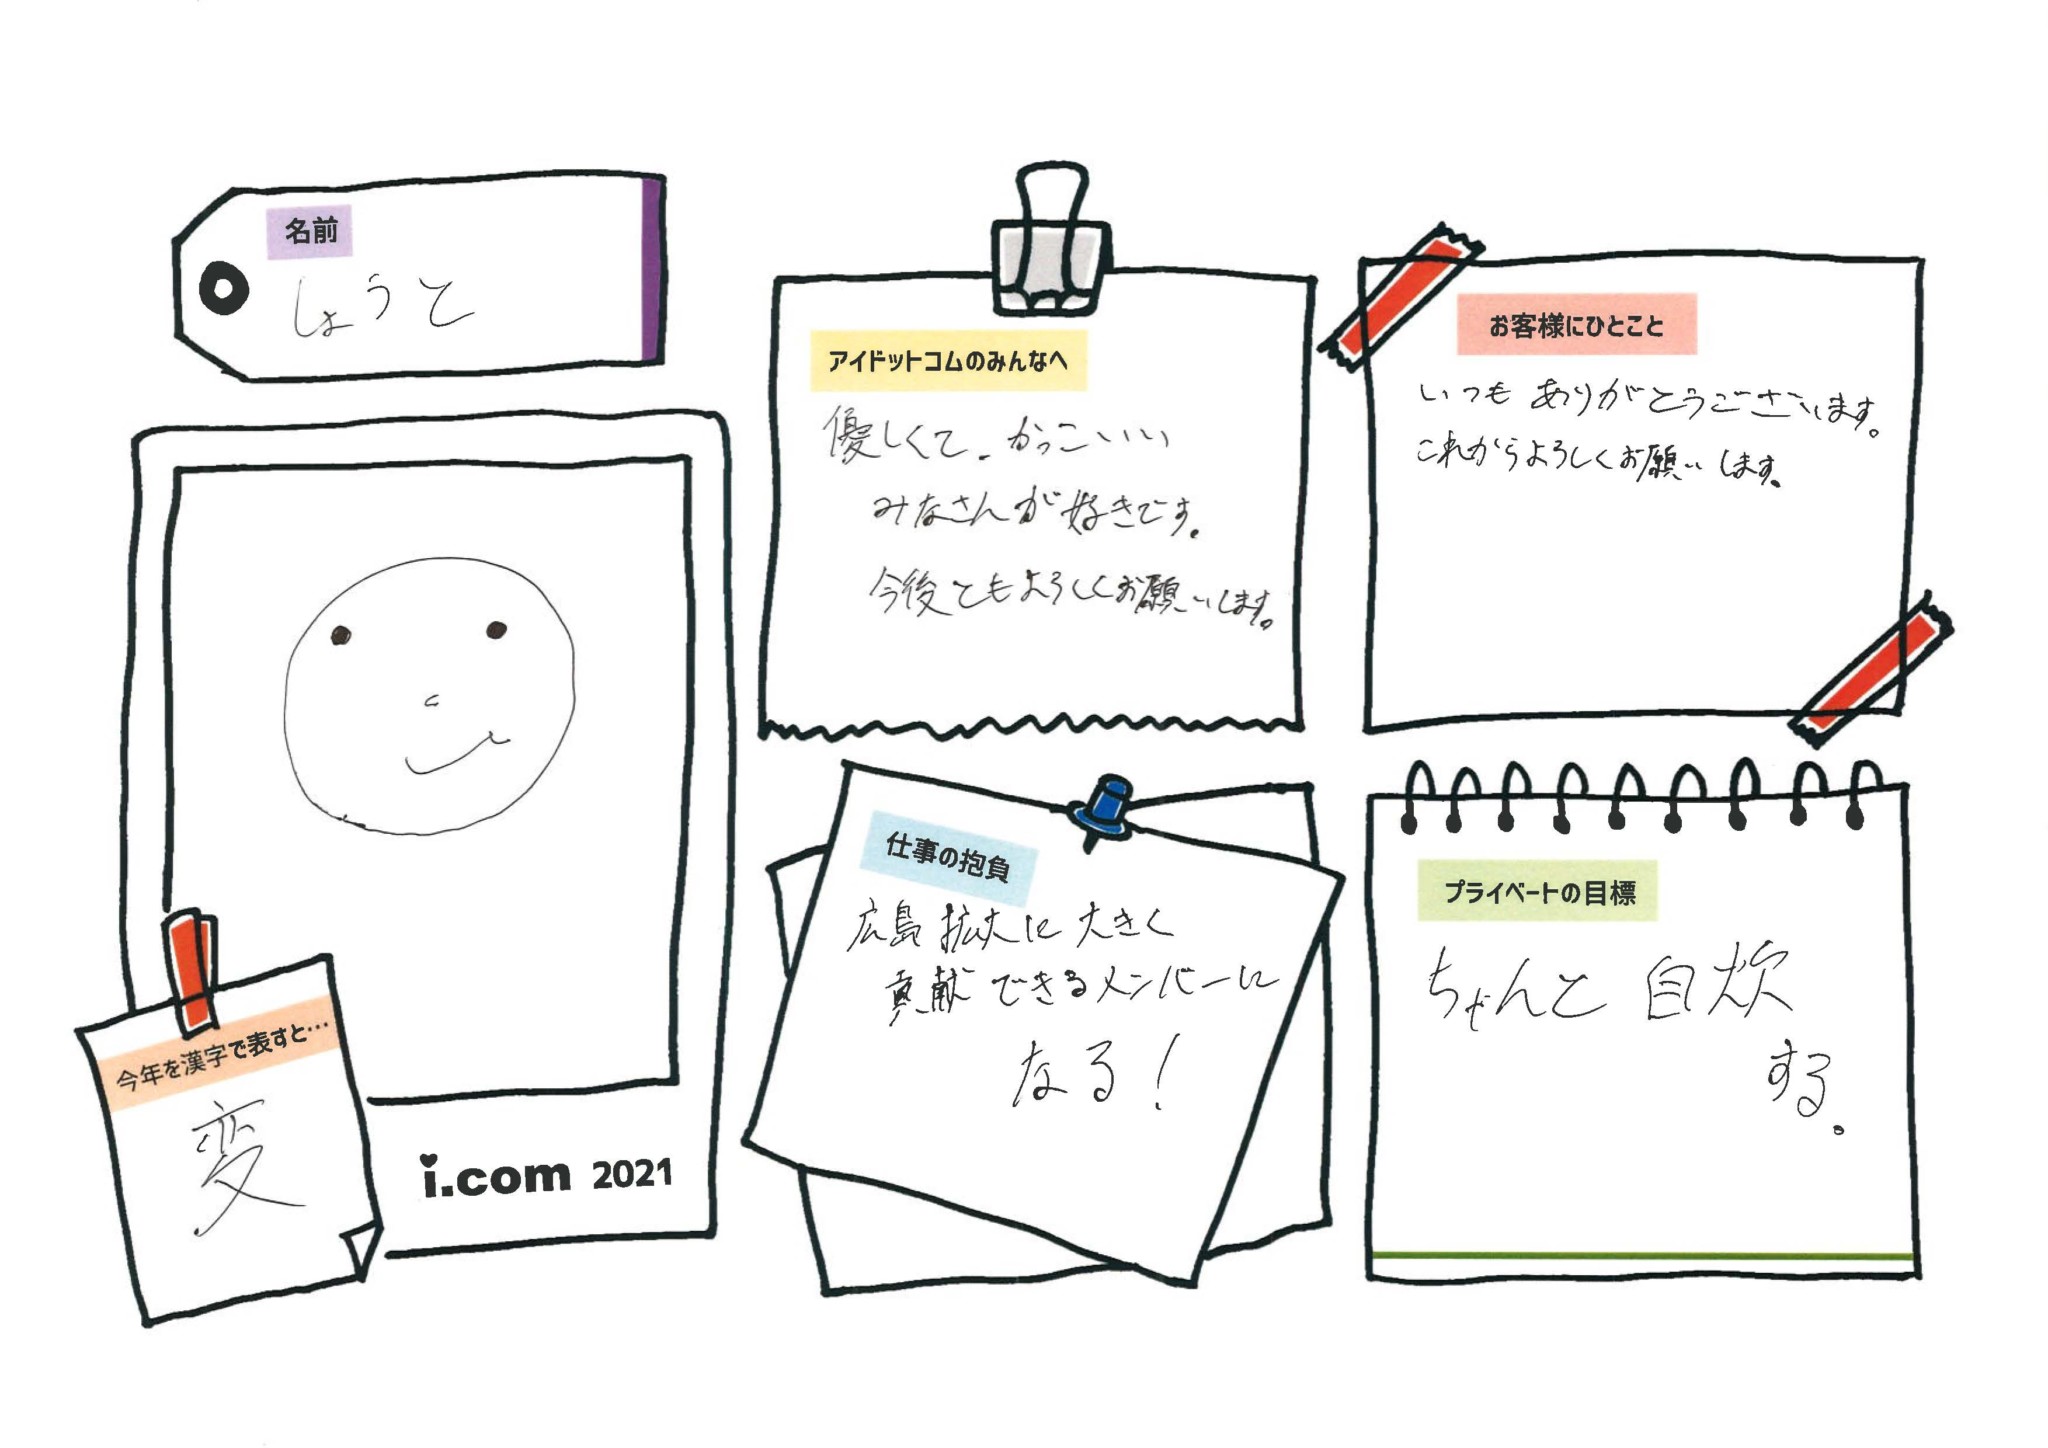 名前
しょうと
今年を漢字で表すと…
変
i.com 2021
アイドットコムのみんなへ
優しくて、かっこいい
みなさんが好きです。
今後ともよろしくお願いします。
お客様にひとこと
いつもありがとうございます。
これからよろしくお願いします。
仕事の抱負
広島拡大に大きく
貢献できるメンバーに
なる！
プライベートの目標
ちゃんと自炊
する。